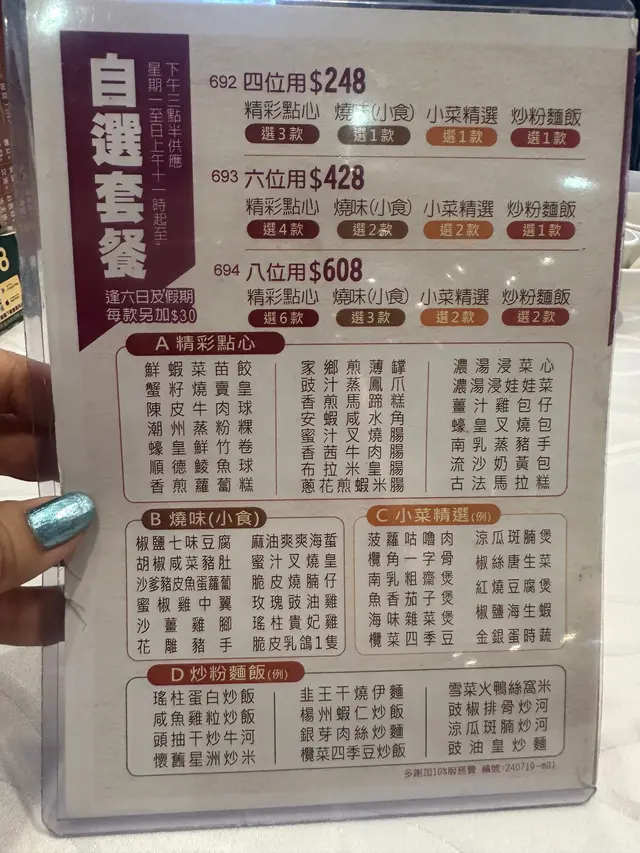 自選套餐
星期一至日上午十一時起至
下午三點半供應
逢六日及假期
每款另加$30
692 四位用$248
精彩點心 燒味(小食) 小菜精選 炒粉麵飯
選3款 選1款 選1款 選1款
693 六位用$428
精彩點心 燒味(小食) 小菜精選 炒粉麵飯
選4款 選2款 選2款 選1款
694 八位用$608
精彩點心 燒味(小食) 小菜精選 炒粉麵飯
選6款 選3款 選2款 選2款
A 精彩點心
鮮蝦菜苗餃 家鄉煎薄罉 濃湯浸菜心
蟹籽燒賣皇 豉汁蒸鳳爪 濃湯浸娃娃菜
陳皮牛肉球 香煎馬蹄糕 薑汁雞包仔
潮州蒸粉粿 安蝦咸水角 蠔皇叉燒包
蠔皇鮮竹卷 蜜汁叉燒腸 南乳蒸豬手
順德鯪魚球 香茜牛肉腸 流沙奶黃包
香煎蘿蔔糕 布拉米皇腸 古法馬拉糕
蔥花煎蝦米腸
B 燒味(小食)
椒鹽七味豆腐 麻油爽爽海蜇
胡椒咸菜豬肚 蜜汁叉燒皇
沙爹豬皮魚蛋蘿蔔 脆皮燒腩仔
蜜椒雞中翼 玫瑰豉油雞
沙薑雞腳 瑤柱貴妃雞
花雕豬手 脆皮乳鴿1隻
C 小菜精選(例)
菠蘿咕嚕肉 涼瓜斑腩煲
欖角一字骨 椒絲唐生菜
南乳粗齋煲 紅燒豆腐煲
魚香茄子煲 椒鹽海生蝦
海味雜菜煲 金銀蛋時蔬
欖菜四季豆
D 炒粉麵飯(例)
瑤柱蛋白炒飯 韭王干燒伊麵 雪菜火鴨絲窩米
咸魚雞粒炒飯 楊州蝦仁炒飯 豉椒排骨炒河
頭抽干炒牛河 銀芽肉絲炒麵 涼瓜斑腩炒河
懷舊星洲炒米 欖菜四季豆炒飯 豉油皇炒麵
多謝加10%服務費 編號:240719-m01